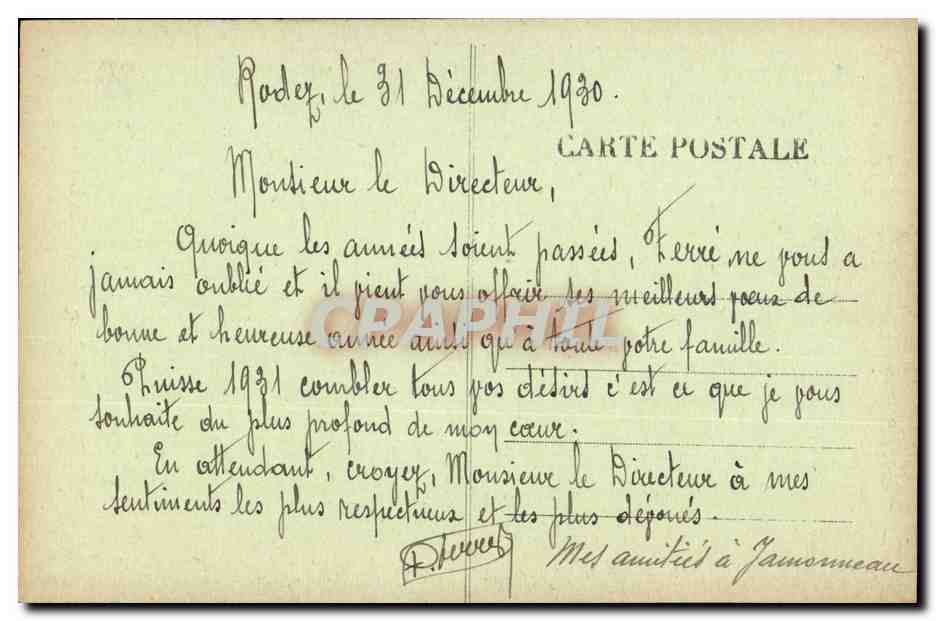 Rodez, le 31 Décembre 1930.
CARTE POSTALE
Monsieur le Directeur,
Quoique les années soient passées, Ferré ne vous a
jamais oublié et il vient vous offrir ses meilleurs vœux de
bonne et heureuse année ainsi qu'à toute votre famille.
Puisse 1931 combler tous vos désirs c'est ce que je vous
souhaite du plus profond de mon cœur.
En attendant, croyez, Monsieur le Directeur à mes
sentiments les plus respectueux et les plus dévoués.
Ferré
Mes amitiés à Jamonneau
CPAPHIL